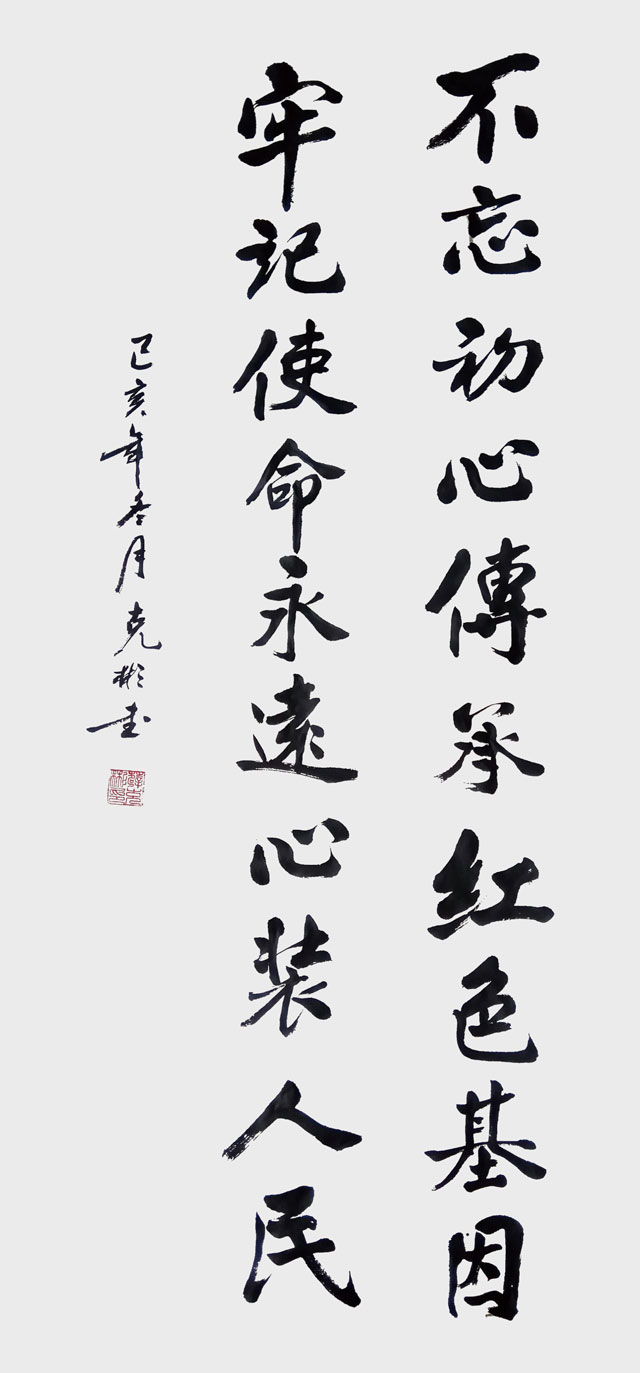 不忘初心傳承红色基因
牢记使命永遠心装人民
己亥年冬月克彬书